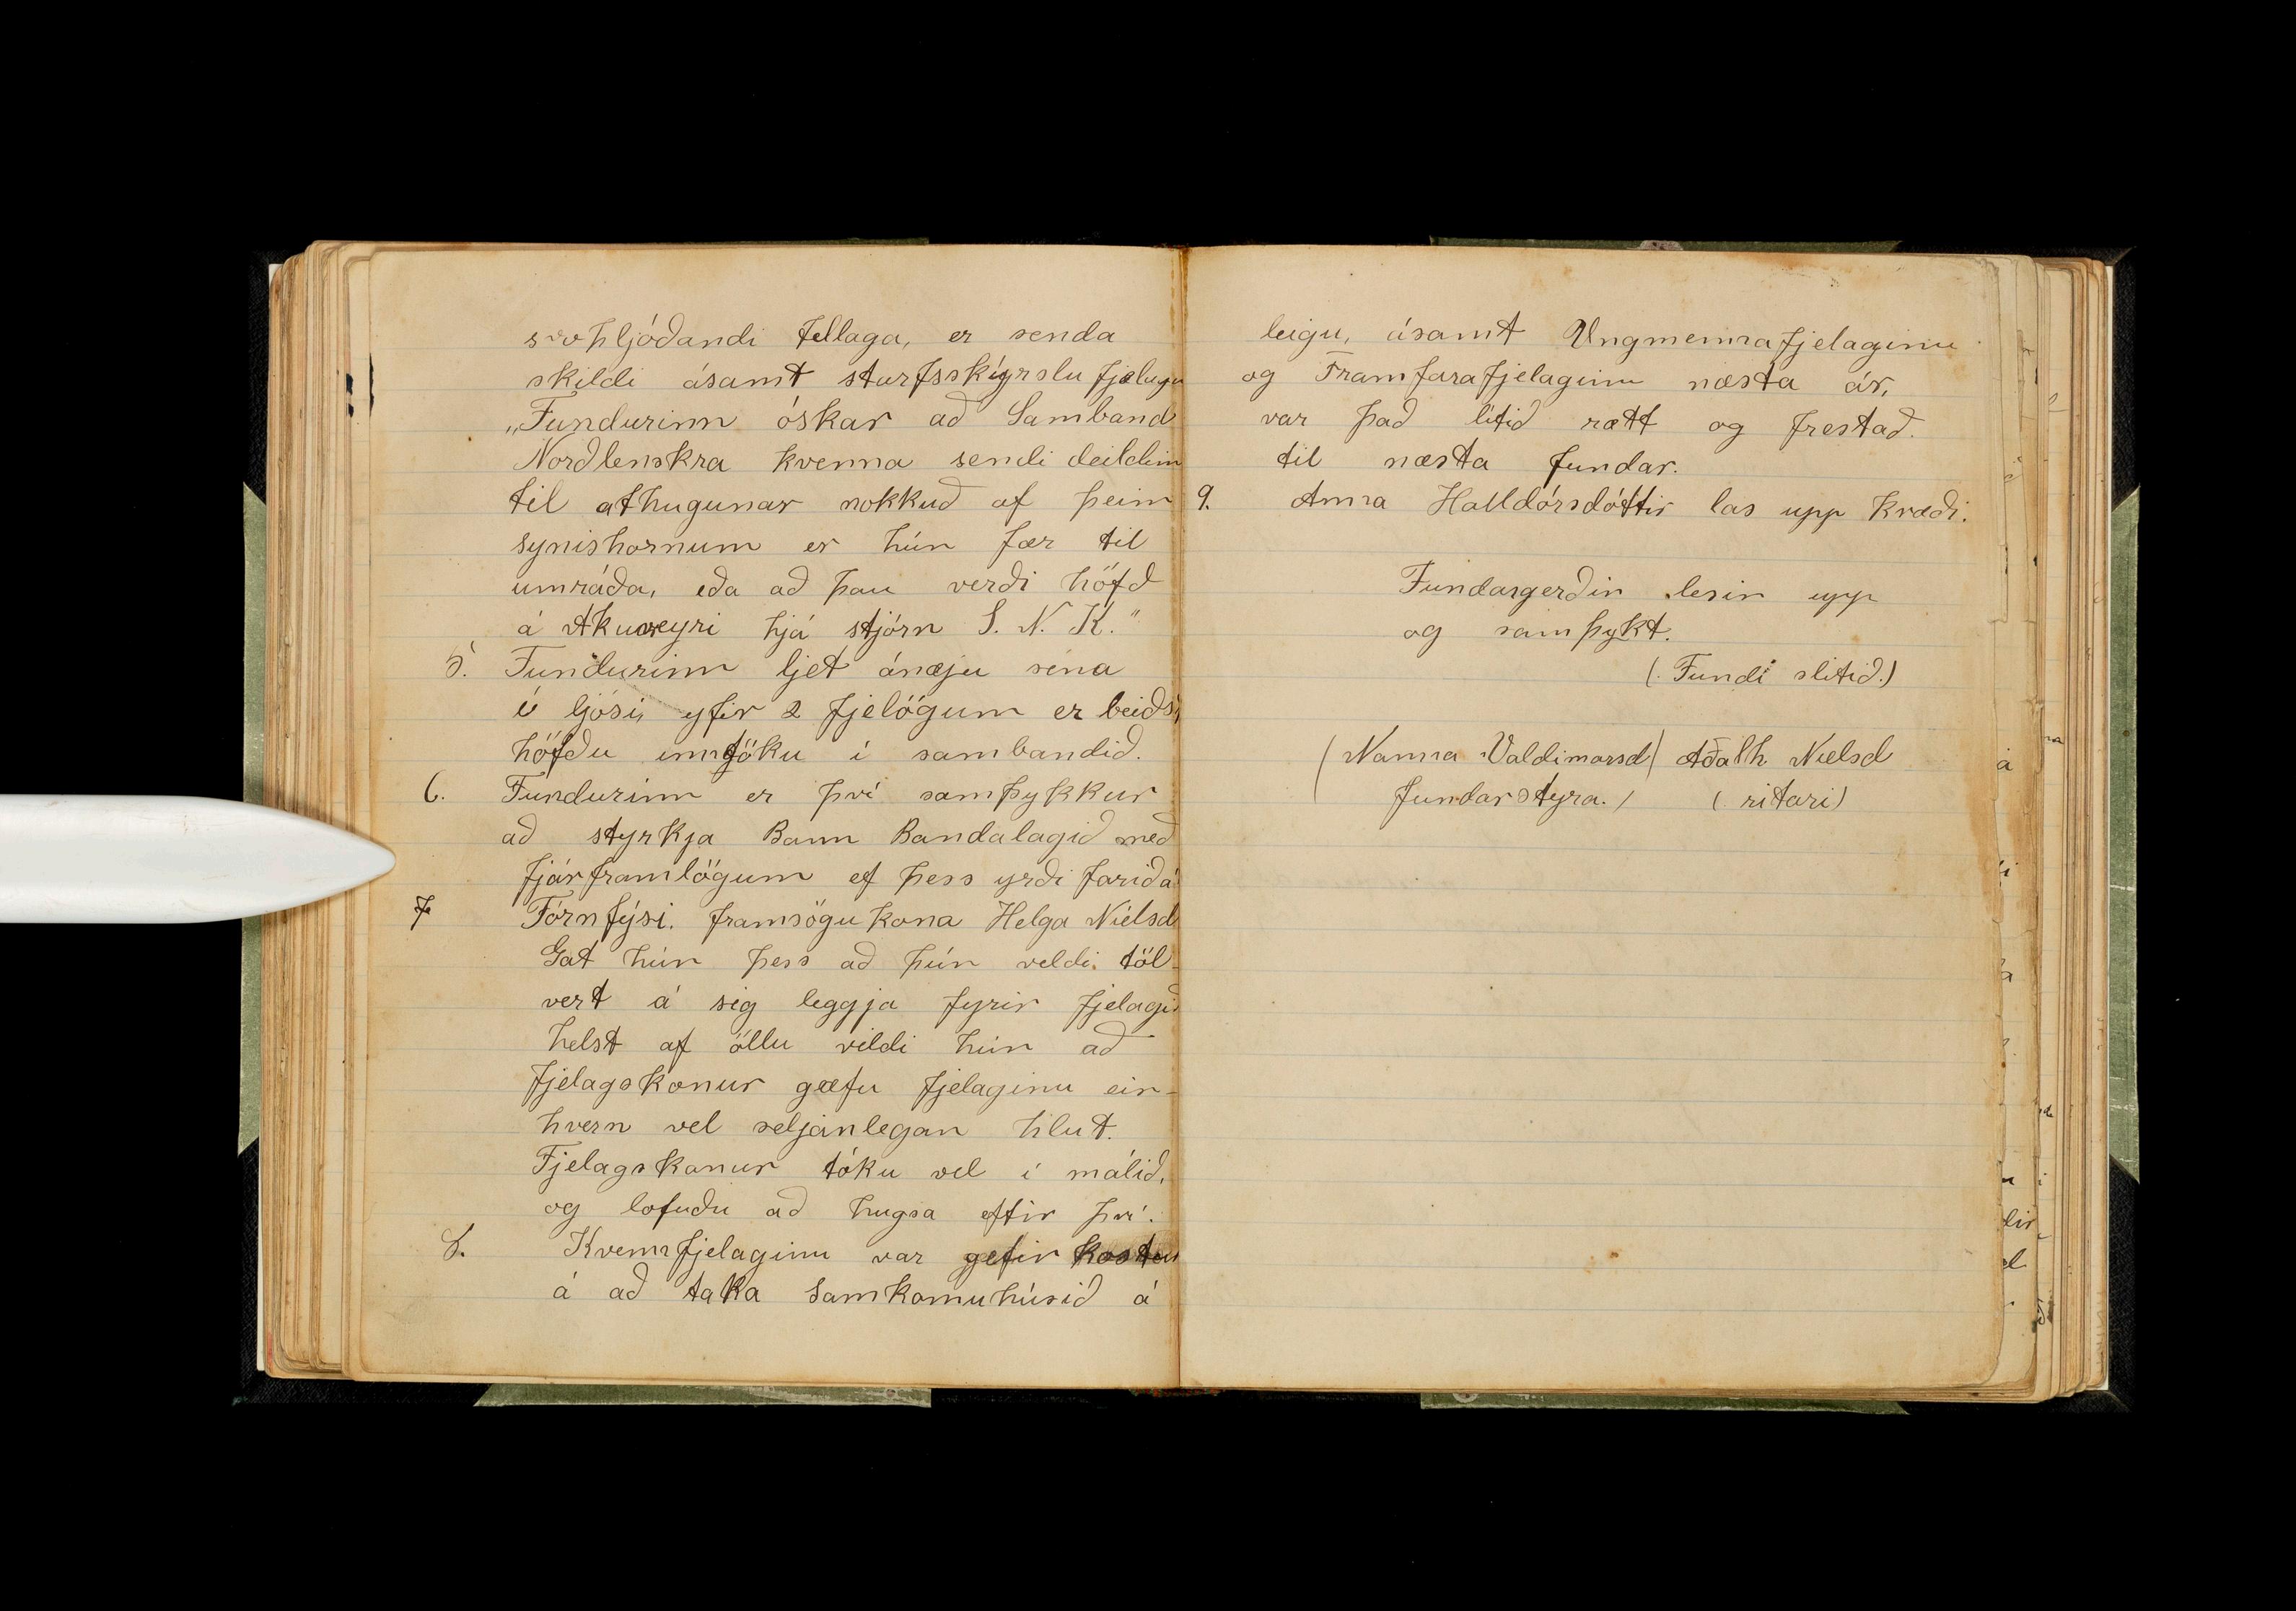 svohljóðandi tellaga, er senda
skildi ásamt starfsskýrslu fjelags
„Fundurinn óskar að Samband
Norðlenskra kvenna sendi deildin
til athugunar nokkuð af þeim
synishornum er hún fær til
umráða, eða að þau verði höfð
á Akureyri hjá stjórn S. N. K."
5. Fundurinn ljet ánæju sína
í ljósi, yfir 2 fjelögum er beiðst
höfðu inntöku í sambandið.
6. Fundurinn er því samþykkur
að styrkja Bann Bandalagið með
fjárframlögum ef þess yrði farið á
7 Fórnfýsi. framsögukona Helga Níelsd
Gat hún þess að hún veldi töl-
vert á sig leggja fyrir fjelagið
helst af öllu vildi hún að
fjelagskonur gæfu fjelaginu ein-
hvern vel seljanlegan hlut.
Fjelagskonur tóku vel í málið,
og lofuðu að hugsa eftir því.
8. Kvennfjelaginu var gefin kostur
á að taka Samkomuhúsið á
leigu, ásamt Ungmennafjelaginu
og Framfarafjelaginu næsta ár,
var það lítið rætt og frestað.
til næsta fundar.
9. Anna Halldórsdóttir las upp kvæði.
Fundargerðin lesin upp
og samþykt.
(Fundi slitið.)
(Nanna Valdimarsd) Aðalh Nielsd
fundarstýra.) (ritari)